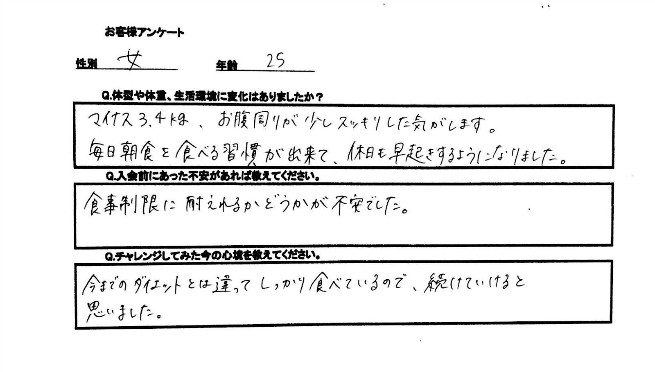 お客様アンケート
性別 女 年齢 25
Q.体型や体重、生活環境に変化はありましたか?
マイナス3.4kg、お腹周りが少しスッキリした気がします。
毎日朝食を食べる習慣が出来て、休日も早起きするようになりました。
Q.入会前にあった不安があれば教えてください。
食事制限に耐えれるかどうかが不安でした。
Q.チャレンジしてみた今の心境を教えてください。
今までのダイエットとは違ってしっかり食べているので、続けていけると
思いました。